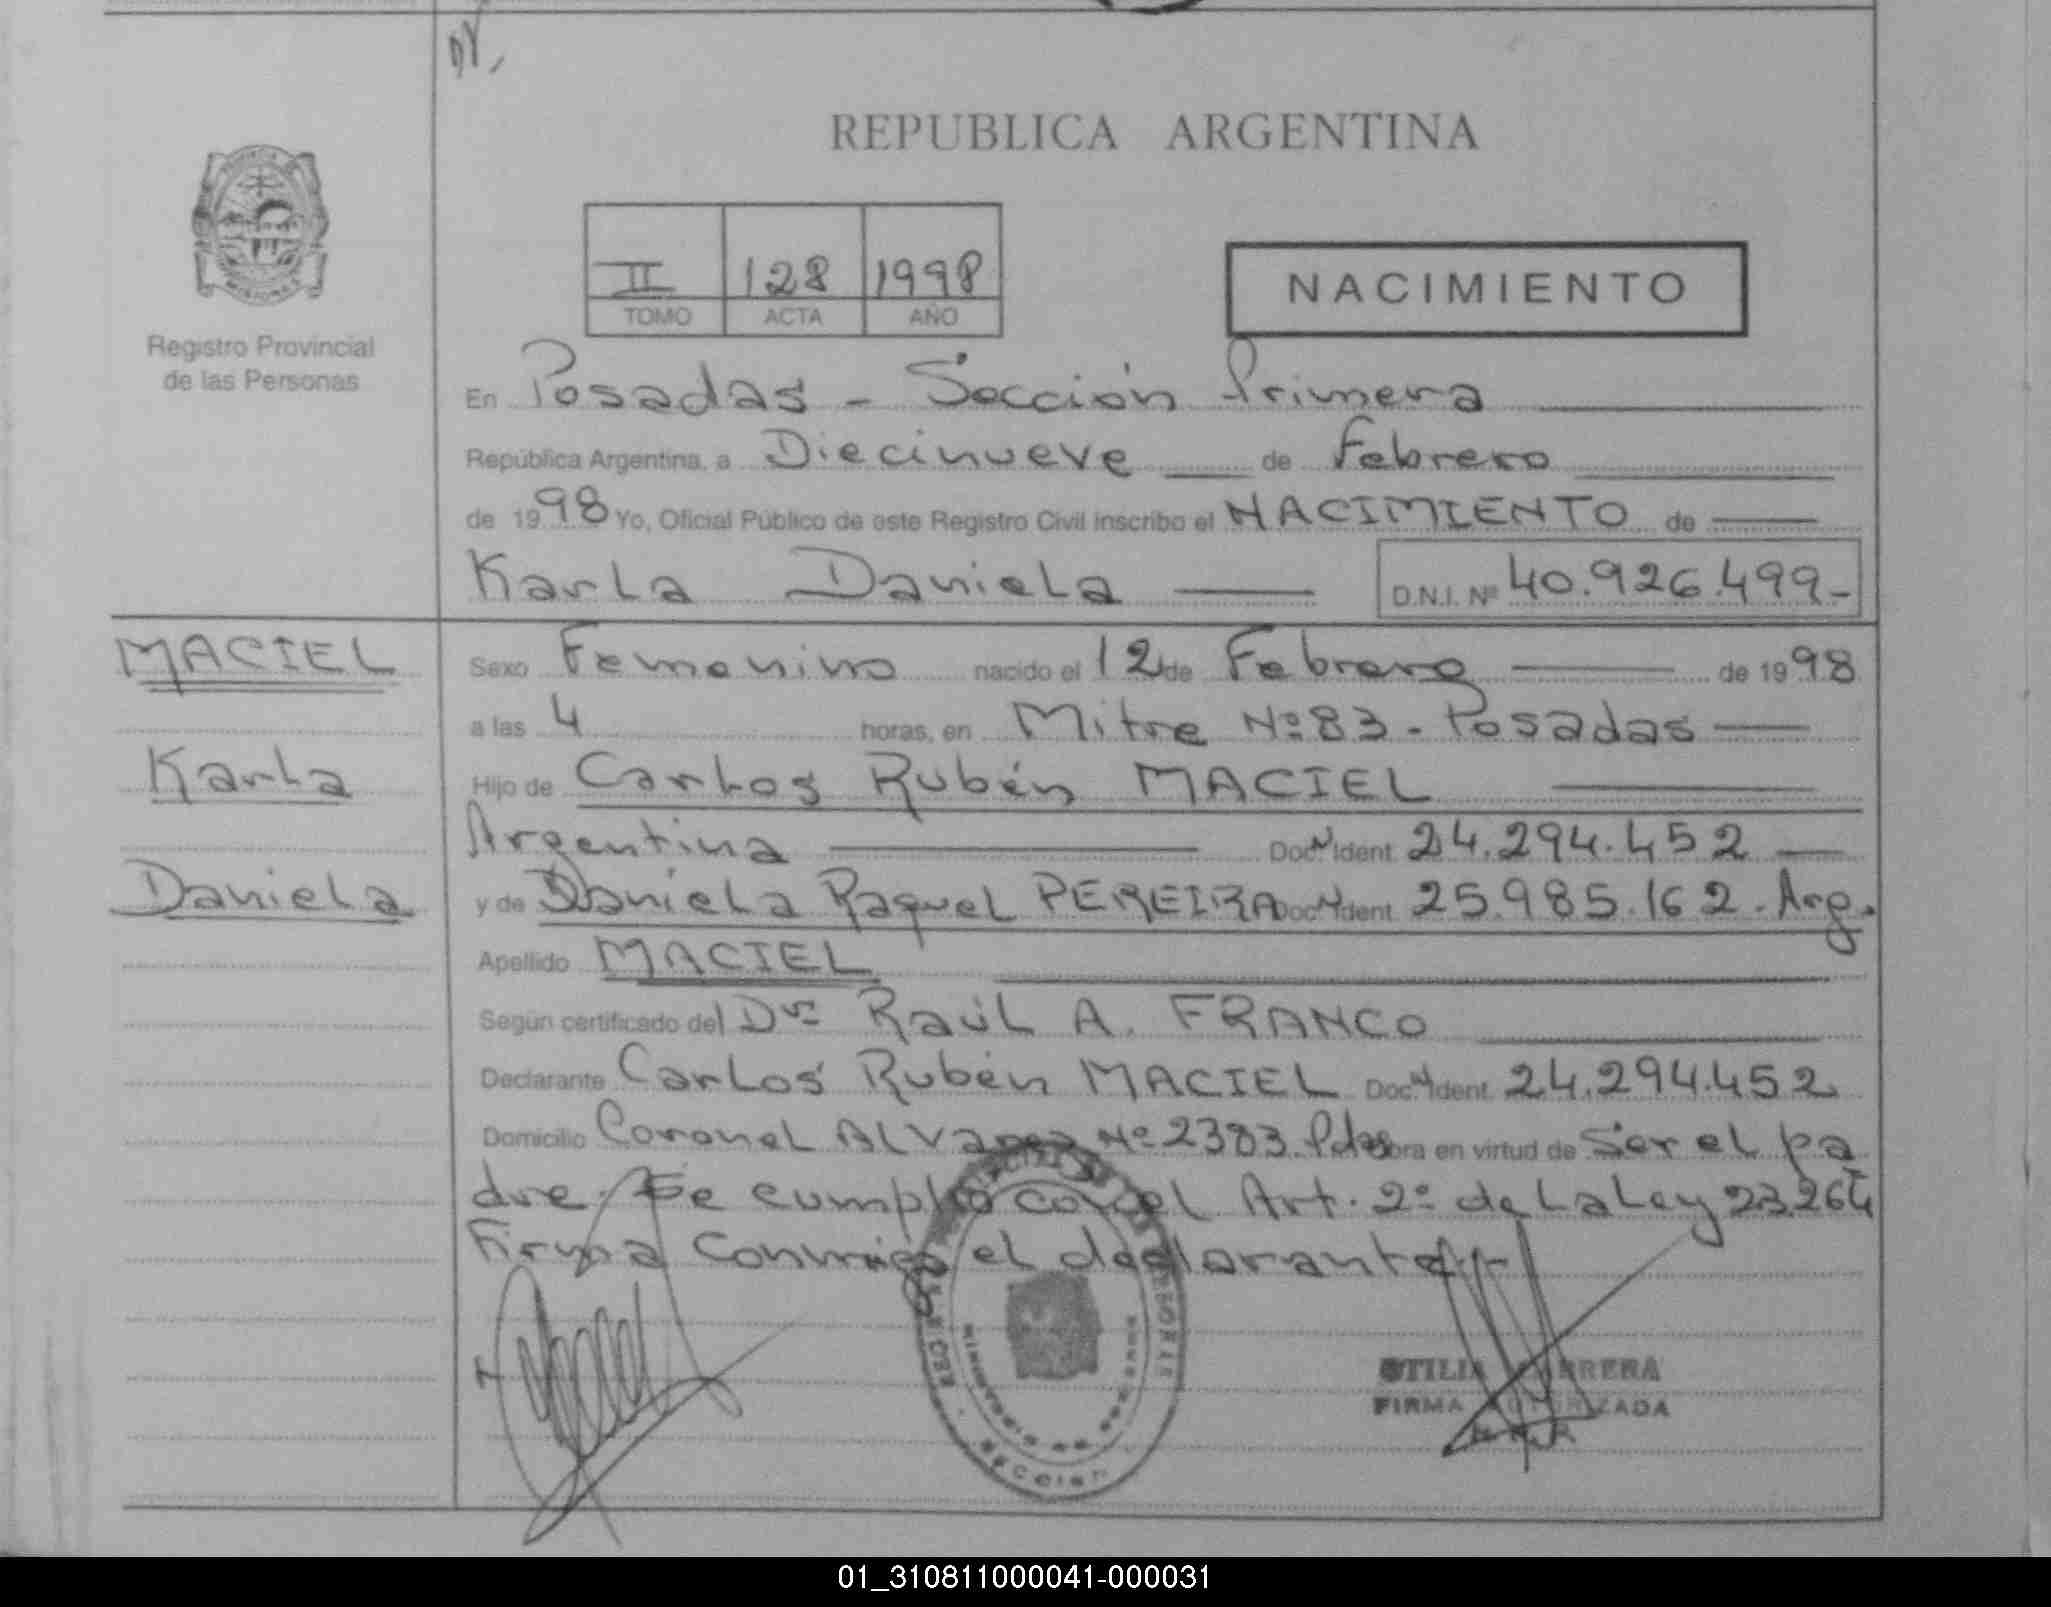 REPUBLICA ARGENTINA
II 128 1998
TOMO ACTA AÑO
NACIMIENTO
Registro Provincial
de las Personas
En Posadas - Sección Primera
República Argentina, a Diecinueve de Febrero
de 1998 Yo, Oficial Público de este Registro Civil inscribo el NACIMIENTO de
Karla Daniela D.N.I. Nº 40.926.499-
MACIEL
Karla
Daniela
Sexo Femenino nacido el 12 de Febrero de 1998
a las 4 horas, en Mitre Nº 83 - Posadas
Hijo de Carlos Rubén MACIEL
Argentina Doc. Ident. 24.294.452
y de Daniela Raquel PEREIRA Doc. Ident. 25.985.162. Arg.
Apellido MACIEL
Según certificado del Dr. Raúl A. FRANCO
Declarante Carlos Rubén MACIEL Doc. Ident. 24.294.452
Domicilio Coronel ALVarez Nº 2383. Pdas obra en virtud de Ser el pa
dre. Se cumplió con el Art. 2º de La Ley 23.264
Firma Conmigo el declarante
OTILIA
FIRMA AUTORIZADA
01_310811000041-000031